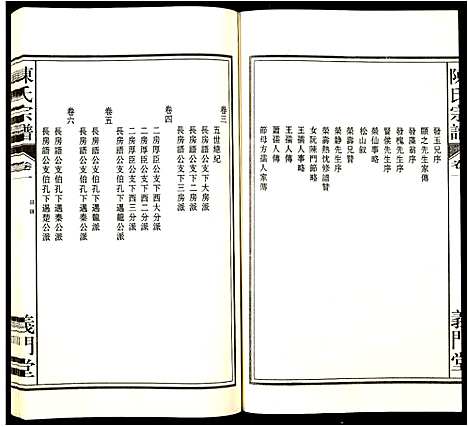 陳氏宗譜
卷一
義門堂
發玉兄序
頤之先生家傳
發藻翁序
發槐先生序
賢侯先生序
榮仙事略
松山敍
榮壽兄贊
榮壽熱忱修譜贊
榮静先生序
女阮陳門節略
王孺人事略
王孺人傳
蕭孺人傳
節母方孺人家傳
卷三
五世總紀
長房語公支下大房派
長房語公支下三房派
卷四
二房厚臣公支下西三分派
二房厚臣公支下西二分派
二房厚臣公支下西分派
卷五
長房語公支伯孔下遇龍派
長房語公支伯孔下遇秦公派
卷六
長房語公支伯孔下遇秦公派
長房語公支伯孔下遇楚公派
陳氏宗譜
卷二
目錄
義門堂